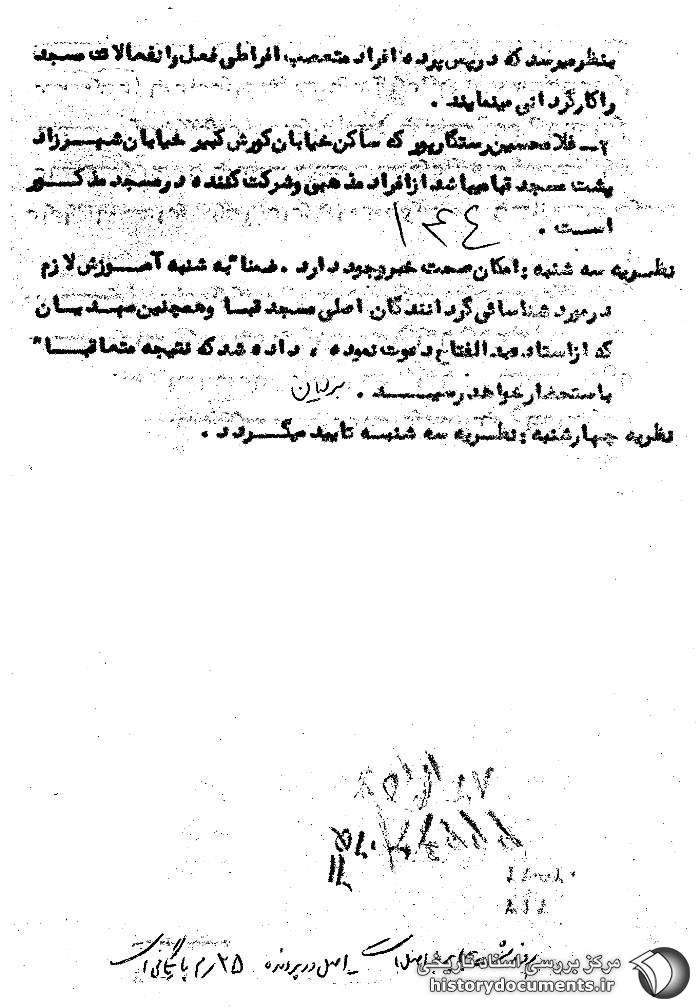 بنظر میرسد که در پس پرده افراد متعصب افراطی فعل و انفعالات مسجد
را کارگردانی مینمایند .
۲ـ غلامحسین رستگارپور که ساکن خیابان کورش کبیر خیابان شهرزاد
پشت مسجد قبا میباشد از افراد مذهبی و شرکت کننده در مسجد مذکور
است .
نظریه سه شنبه : امکان صحت خبر وجود دارد . ضمنا" به شنبه آموزش لازم
در مورد شناسائی گردانندگان اصلی مسجد قبا و همچنین مهدیان
که از استاد عبدالفتاح دعوت نموده ، داده شد که نتیجه متعاقبا"
باستحضار خواهد رسید .
نظریه چهارشنبه : نظریه سه شنبه تایید میگردد .
اصل در پرونده
مرکز بررسی اسناد تاریخی
historydocuments.ir